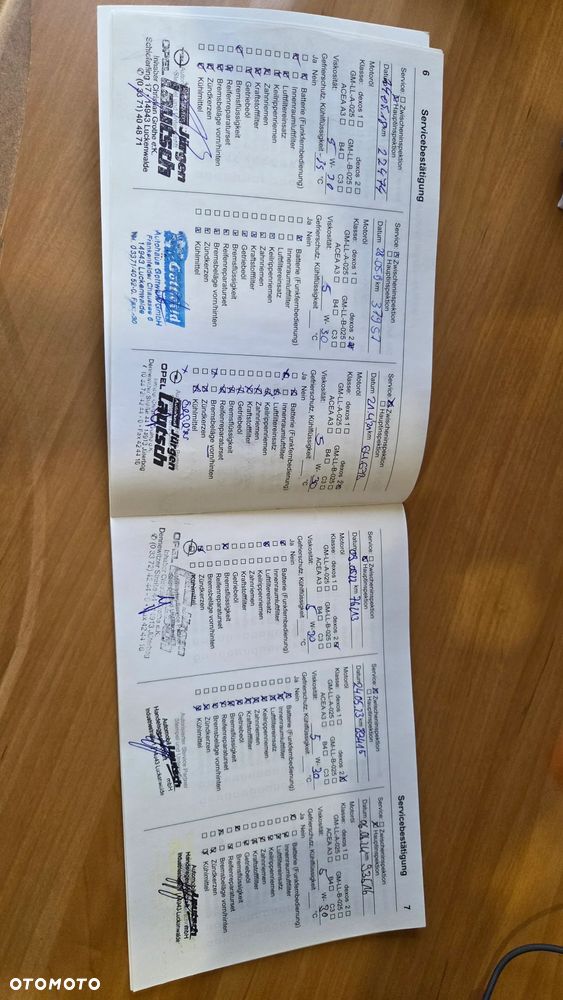 6
Servicebestätigung
Service: Zwischeninspektion
Hauptinspektion
Datum km 22474
Motoröl
Klasse: dexos 1 dexos 2
GM-LL-A-025 GM-LL-B-025
ACEA A3 B4 C3
Viskosität: 5 W- 30
Gefrierschutz, Kühlflüssigkeit -35 °C
Ja Nein
Batterie (Funkfernbedienung)
Innenraumluftfilter
Luftfiltereinsatz
Keilrippenriemen
Zahnriemen
Kraftstofffilter
Getriebeöl
Bremsflüssigkeit
Reifenreparaturset
Bremsbeläge vorn/hinten
Zündkerzen
Kühlmittel
Jürgen
OPEL Lautsch
Inhaber Christian Grothe e.K.
14943 Luckenwalde
(0 33 71) 40 48 71
Service: Zwischeninspektion
Hauptinspektion
Datum km 37957
Motoröl
Klasse: dexos 1 dexos 2
GM-LL-A-025 GM-LL-B-025
ACEA A3 B4 C3
Viskosität: 5 W- 30
Gefrierschutz, Kühlflüssigkeit °C
Ja Nein
Batterie (Funkfernbedienung)
Innenraumluftfilter
Luftfiltereinsatz
Keilrippenriemen
Zahnriemen
Kraftstofffilter
Getriebeöl
Bremsflüssigkeit
Reifenreparaturset
Bremsbeläge vorn/hinten
Zündkerzen
Kühlmittel
Autohaus GmbH
Frankenfelder Chaussee 6
14943 Luckenwalde
Service: Zwischeninspektion
Hauptinspektion
Datum km
Motoröl
Klasse: dexos 1 dexos 2
GM-LL-A-025 GM-LL-B-025
ACEA A3 B4 C3
Viskosität: 5 W- 30
Gefrierschutz, Kühlflüssigkeit °C
Ja Nein
Batterie (Funkfernbedienung)
Innenraumluftfilter
Luftfiltereinsatz
Keilrippenriemen
Zahnriemen
Kraftstofffilter
Getriebeöl
Bremsflüssigkeit
Reifenreparaturset
Bremsbeläge vorn/hinten
Zündkerzen
Kühlmittel
Jürgen
OPEL Lautsch
7
Servicebestätigung
Service: Zwischeninspektion
Hauptinspektion
Datum km 76213
Motoröl
Klasse: dexos 1 dexos 2
GM-LL-A-025 GM-LL-B-025
ACEA A3 B4 C3
Viskosität: 5 W- 30
Gefrierschutz, Kühlflüssigkeit °C
Ja Nein
Batterie (Funkfernbedienung)
Innenraumluftfilter
Luftfiltereinsatz
Keilrippenriemen
Zahnriemen
Kraftstofffilter
Getriebeöl
Bremsflüssigkeit
Reifenreparaturset
Bremsbeläge vorn/hinten
Zündkerzen
Kühlmittel
OPEL
Service: Zwischeninspektion
Hauptinspektion
Datum 24.05.23 km
Motoröl
Klasse: dexos 1 dexos 2
GM-LL-A-025 GM-LL-B-025
ACEA A3 B4 C3
Viskosität: 5 W- 30
Gefrierschutz, Kühlflüssigkeit °C
Ja Nein
Batterie (Funkfernbedienung)
Innenraumluftfilter
Luftfiltereinsatz
Keilrippenriemen
Zahnriemen
Kraftstofffilter
Getriebeöl
Bremsflüssigkeit
Reifenreparaturset
Bremsbeläge vorn/hinten
Zündkerzen
Kühlmittel
Lautsch
Luckenwalde
Service: Zwischeninspektion
Hauptinspektion
Datum km 92616
Motoröl
Klasse: dexos 1 dexos 2
GM-LL-A-025 GM-LL-B-025
ACEA A3 B4 C3
Viskosität: 5 W- 30
Gefrierschutz, Kühlflüssigkeit °C
Ja Nein
Batterie (Funkfernbedienung)
Innenraumluftfilter
Luftfiltereinsatz
Keilrippenriemen
Zahnriemen
Kraftstofffilter
Getriebeöl
Bremsflüssigkeit
Reifenreparaturset
Bremsbeläge vorn/hinten
Zündkerzen
Kühlmittel
Lautsch
Luckenwalde
OTOMOTO